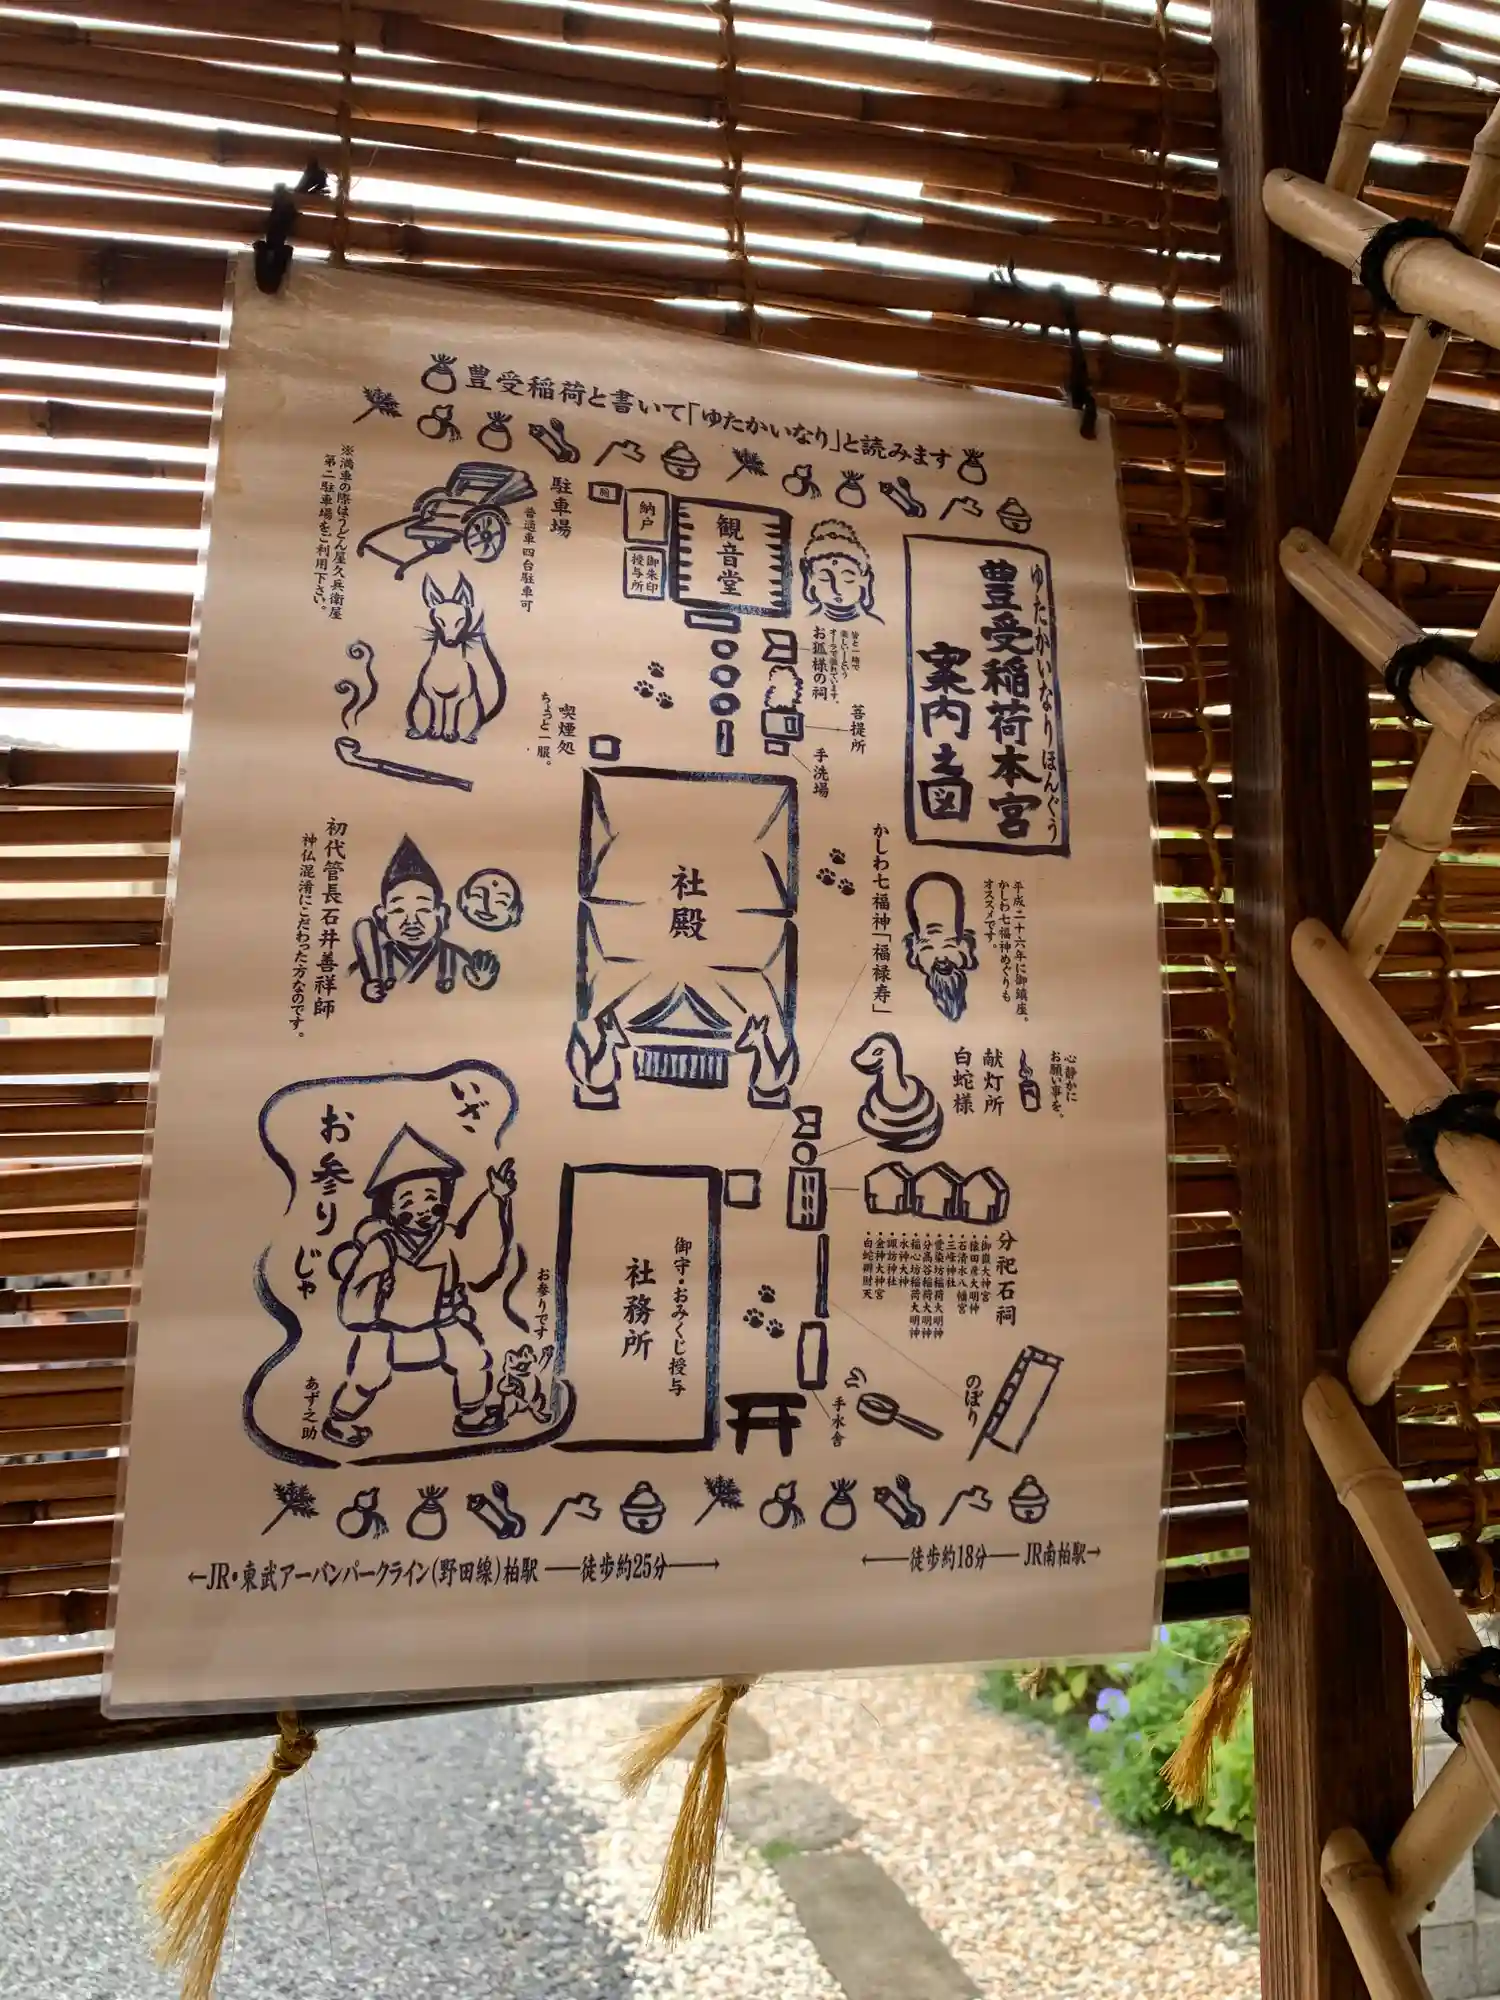 豊受稲荷と書いて「ゆたかいなり」と読みます
ゆたかいなりほんぐう
豊受稲荷本宮
案内之図
※満車の際はうどん屋久兵衛屋
第二駐車場をご利用下さい。
駐車場
普通車四台駐車可
納戸
御朱印
授与所
観音堂
皆と一緒で
楽しいーという
オーラで溢れています。
お狐様の祠
菩提所
手洗場
喫煙処
ちょっと一服。
社殿
初代管長石井善祥師
神仏混淆にこだわった方なのです。
かしわ七福神「福禄寿」
平成二十六年に御鎮座。
かしわ七福神めぐりも
オススメです。
心静かに
お願い事を。
献灯所
白蛇様
分祀石祠
・御嶽大神宮
・猿田彦大明神
・石清水八幡宮
・三峰神社
・愛染坊稲荷大明神
・分高谷稲荷大明神
・稲心坊稲荷大明神
・水神大神
・諏訪神社
・金神大神宮
・白蛇辨財天
いざ、
お参りじゃ
お参りです
あず之助
御守・おみくじ授与
社務所
手水舎
のぼり
←JR・東武アーバンパークライン(野田線)柏駅 ──徒歩約25分──→
←──徒歩約18分── JR南柏駅→